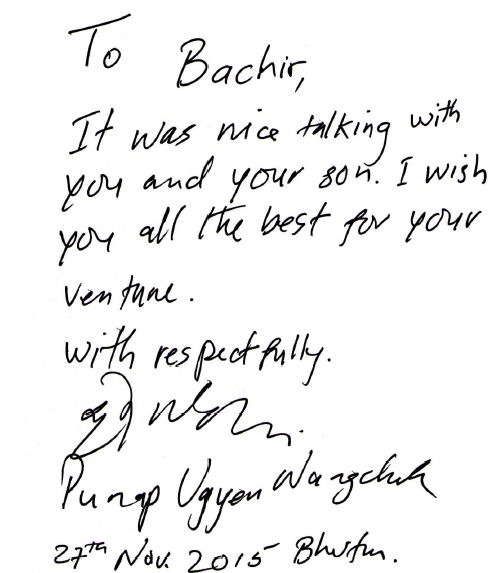 To Bachir,
It was nice talking with
you and your son. I wish
you all the best for your
venture.
With respectfully.
Punap Ugyen Wangchuk
27th Nov. 2015 Bhutan.